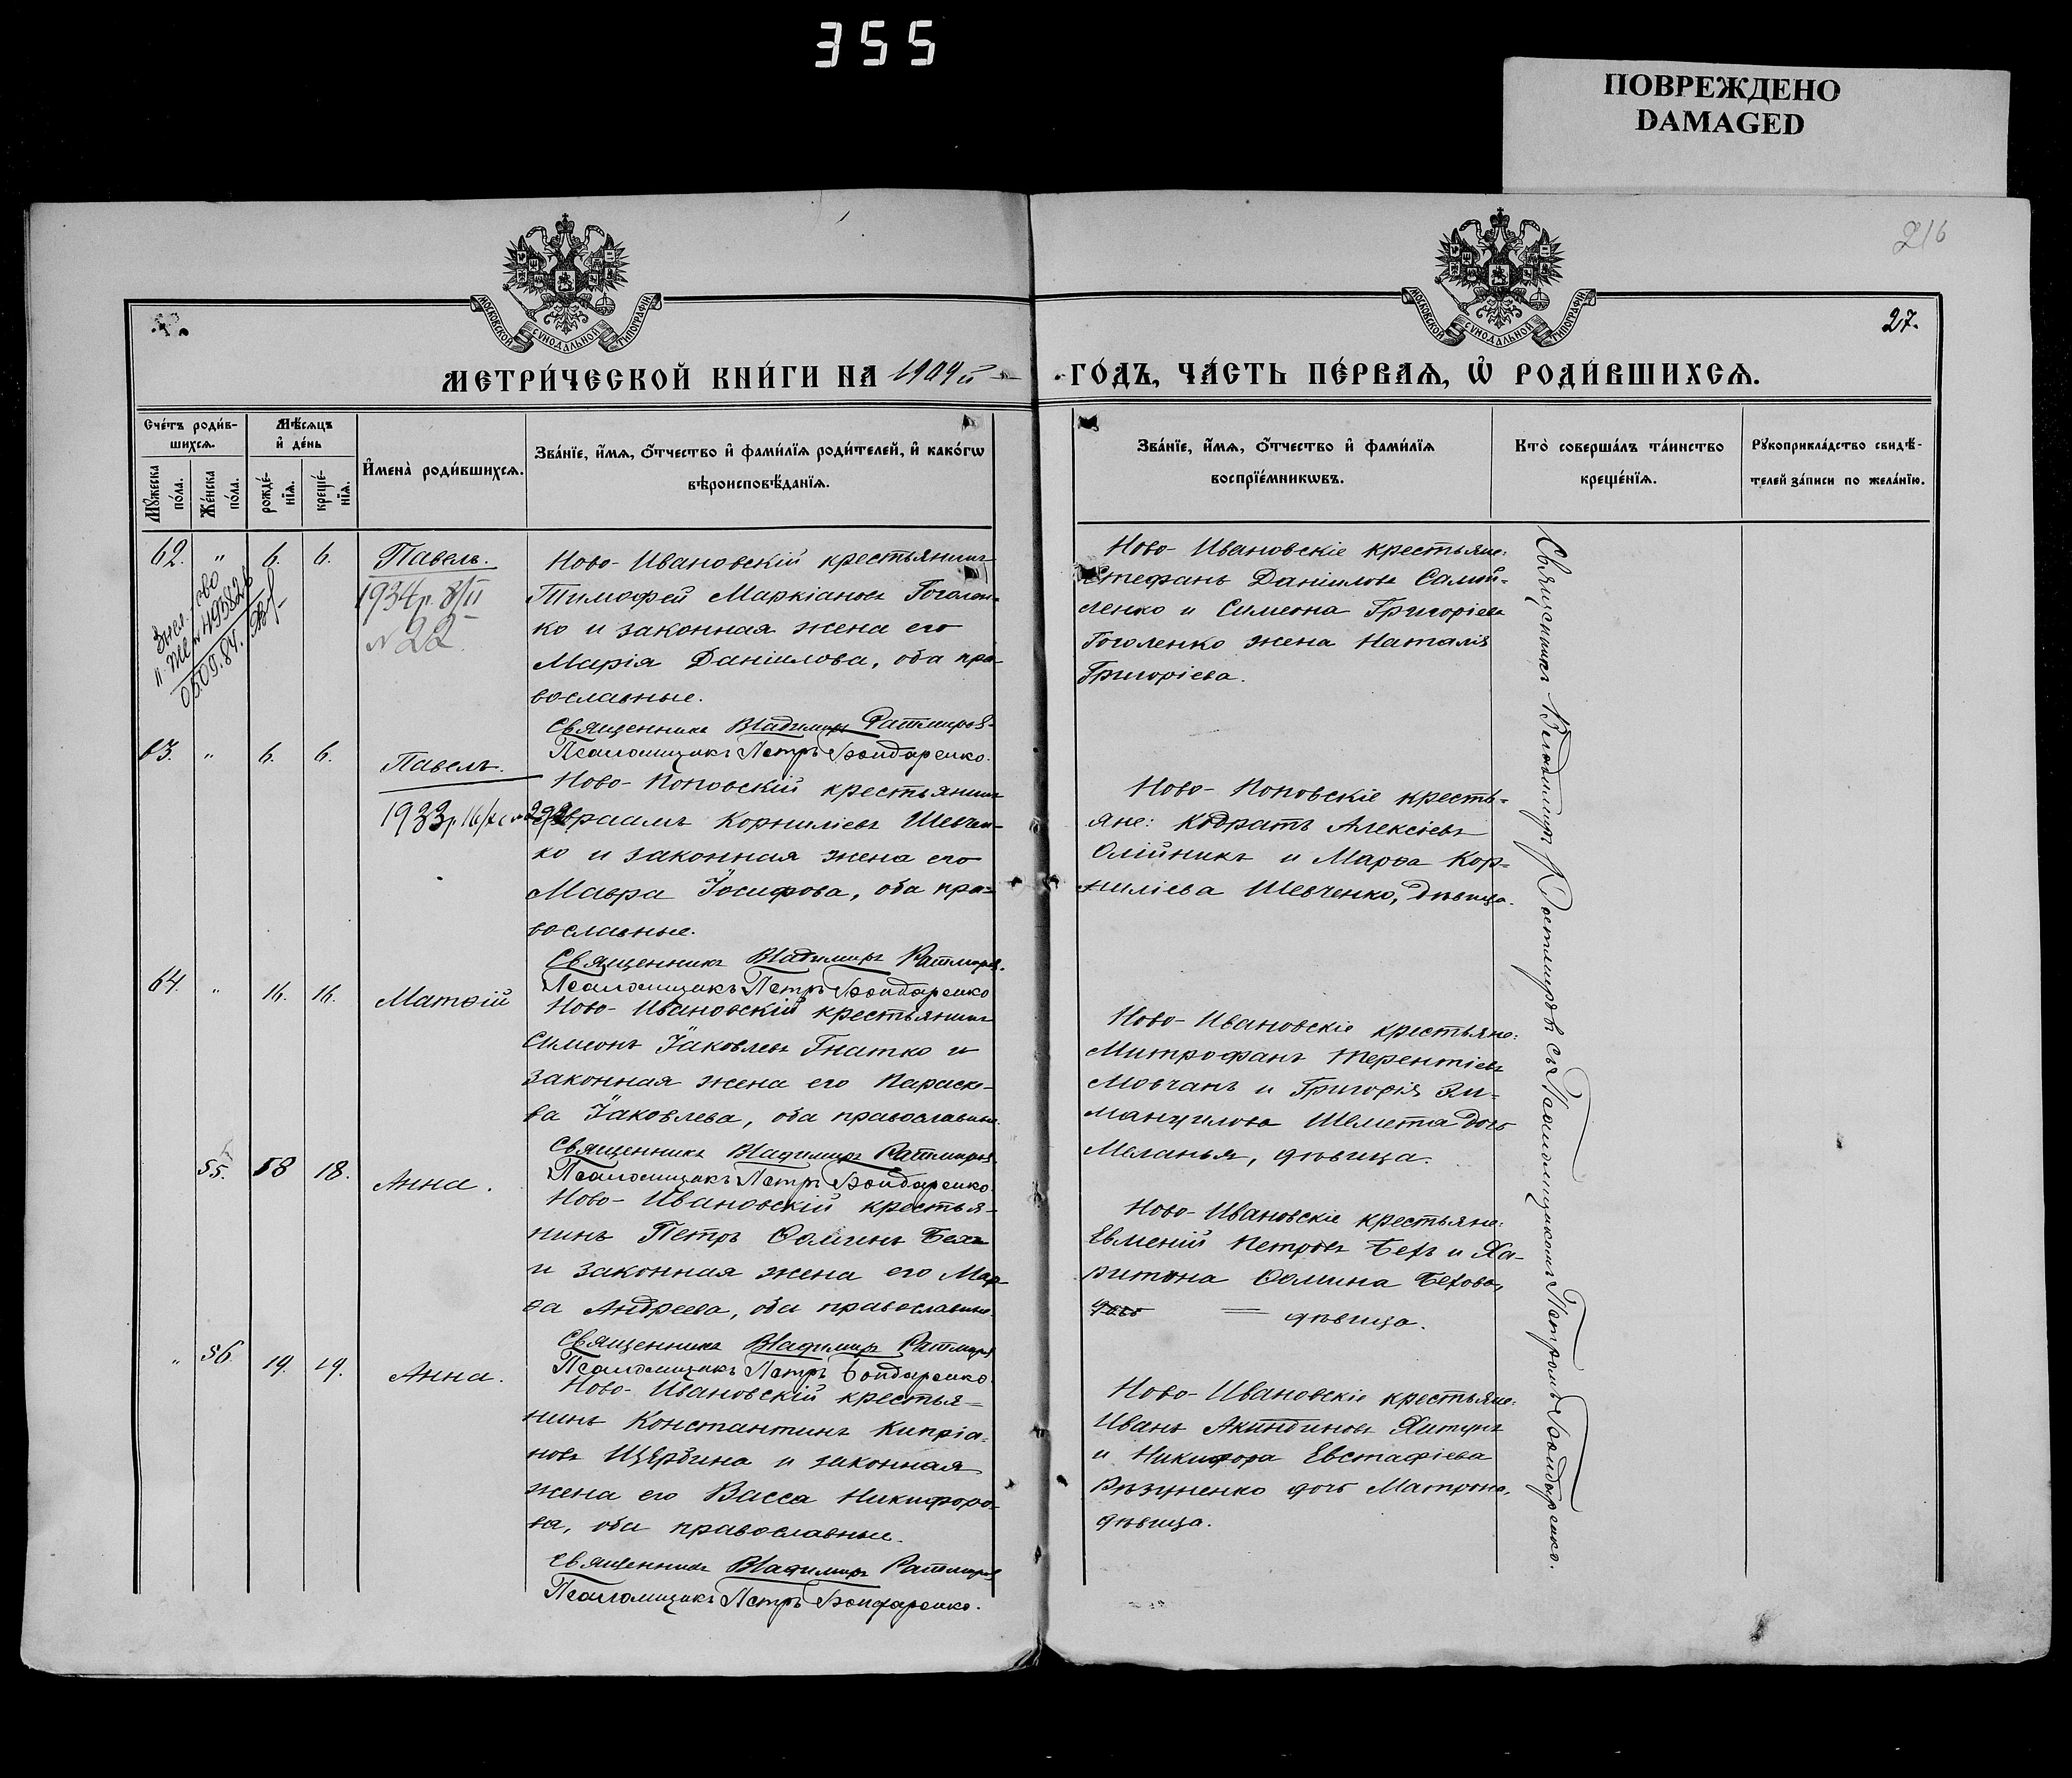 355
ПОВРЕЖДЕНО
DAMAGED
216
27.
МОСКОВСКОЙ СУНОДАЛЬНОЙ ТИПОГРАФІИ
МОСКОВСКОЙ СУНОДАЛЬНОЙ ТИПОГРАФІИ
МЕТРИ́ЧЕСКОЙ КНИ́ГИ НА 1909й
ГО́ДЪ, ЧА́СТЬ ПЕ́РВАѦ, Ѡ҆ РОДИ́ВШИХСѦ.
Сче́тъ роди́в-
шихсѧ.
Мꙋ́жеска по́ла.
Же́нска по́ла.
Мѣ́сѧцъ
и҆ де́нь
рожде́-
нїѧ.
креще́-
нїѧ.
И҆мена̀ роди́вшихсѧ.
Зва́нїе, и҆́мѧ, ѻ҆́тчество и҆ фами́лїѧ роди́телей, и҆ како́гѡ
вѣроисповѣ́данїѧ.
Зва́нїе, и҆́мѧ, ѻ҆́тчество и҆ фами́лїѧ
воспрїе́мникѡвъ.
Кто̀ соверша́лъ та́инство
креще́нїѧ.
Рꙋкоприкла́дство свидѣ́-
телей за́писи по жела́нїю.
62. " 6. 6. Павелъ.
1934р. 8/II
№ 22.
05.09.84.
Ново-Ивановскій крестьянинъ
Тимофей Маркіановъ Гоголен-
ко и законная жена его
Марія Даніилова, оба пра-
вославные.
Священникъ Владимиръ Ратмировъ
Псаломщикъ Петръ Бондаренко.
Ново-Ивановскіе крестьяне:
Стефанъ Даніиловъ Самой-
ленко и Симеона Григоріева
Гоголенко жена Наталія
Григоріева.
63. " 6. 6. Павелъ.
Ново-Поповскій крестьянинъ
Авраамъ Корниліевъ Шевчен-
ко и законная жена его
Мавра Іосифова, оба пра-
вославные.
Священникъ Владимиръ Ратмировъ.
Псаломщикъ Петръ Бондаренко
Ново-Поповскіе кресть-
яне: Кодратъ Алексіевъ
Олійникъ и Марѳа Кор-
ниліева Шевченко, дѣвица.
64. " 16. 16. Матѳій
Ново-Ивановскій крестьянинъ
Симеонъ Іаковлевъ Гнатко и
законная жена его Параске-
ва Іаковлева, оба православные.
Священникъ Владимиръ Ратмировъ.
Псаломщикъ Петръ Бондаренко.
Ново-Ивановскіе крестьяне:
Митрофанъ Терентіевъ
Мовчанъ и Григорія Эм-
мануилова Шемета дочь
Меланья, дѣвица.
55. 18 18. Анна.
Ново-Ивановскій крестья-
нинъ Петръ Ѳоминъ Бехъ
и законная жена его Мар-
ѳа Андреева, оба православные.
Священникъ Владимиръ Ратмировъ
Псаломщикъ Петръ Бондаренко.
Ново-Ивановскіе крестьяне:
Евменій Петровъ Бехъ и Ха-
ритина Ѳомина Бехова,
дочь = дѣвица.
" 56. 19. 19. Анна.
Ново-Ивановскій крестья-
нинъ Константинъ Кипріа-
новъ Щербина и законная
жена его Васса Никифоро-
ва, оба православные.
Священникъ Владимиръ Ратмировъ
Псаломщикъ Петръ Бондаренко.
Ново-Ивановскіе крестьяне:
Иванъ Акиндиновъ
и Никифора Евстафіева
Рѣзуненко дочь Матрона,
дѣвица.
Священникъ Владимиръ Ратмировъ съ Псаломщикомъ Петромъ Бондаренко.